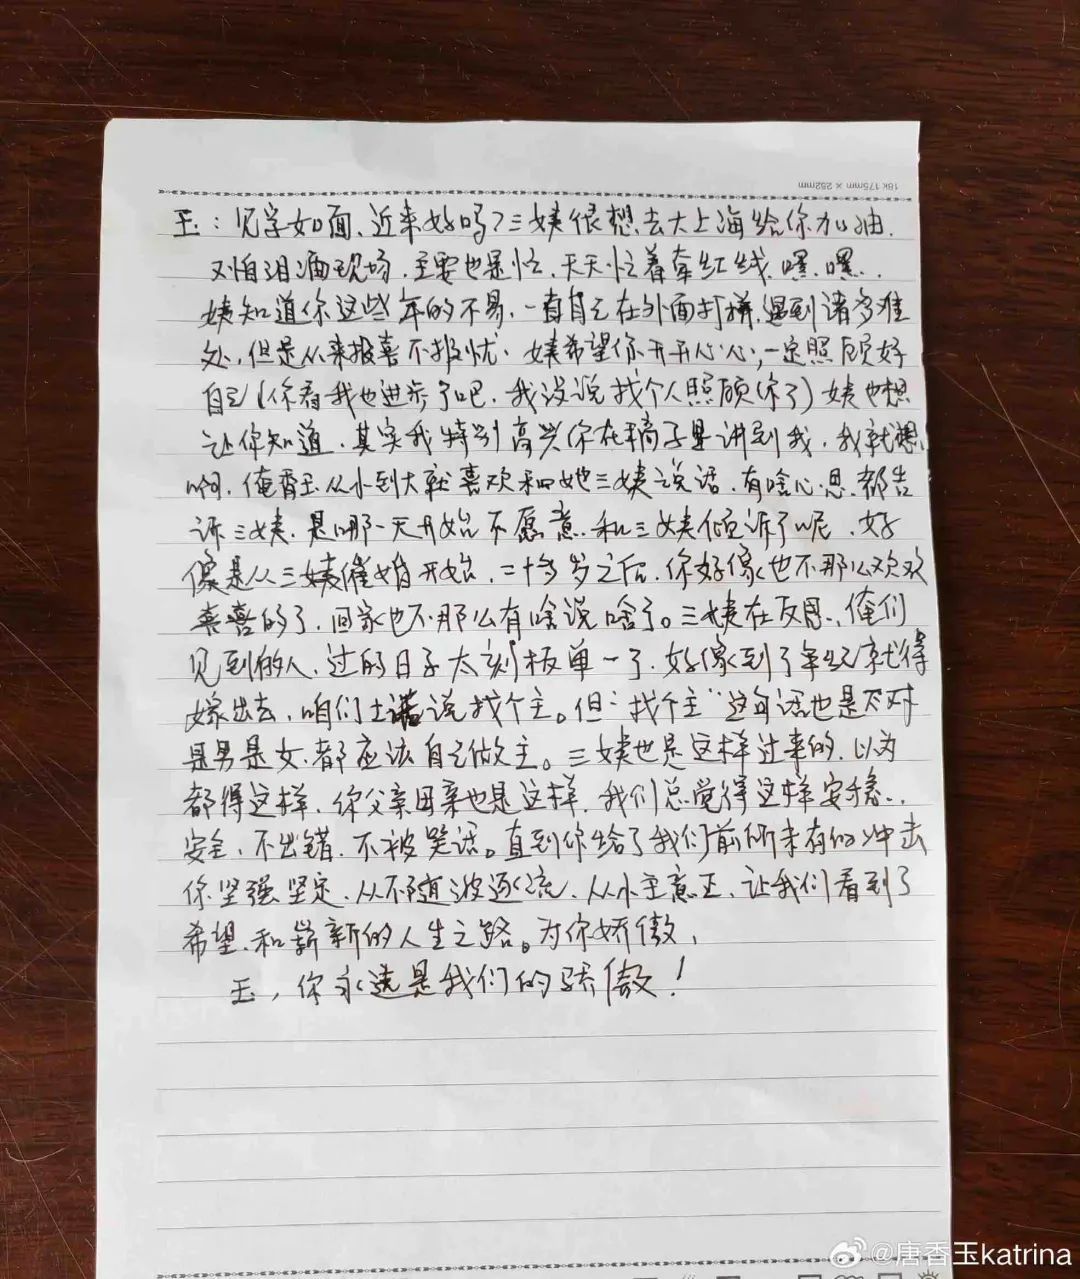 18K 175mm × 252mm
玉：见字如面、近来好吗？三姨很想去大上海给你加油.
又怕泪洒现场.主要也是忙.天天忙着牵红线.嘿.嘿..
姨知道你这些年的不易.一直自己在外面打拼.遇到诸多难
处.但是从来报喜不报忧.姨希望你开开心心,一定照顾好
自己(你看我也进步了吧.我没说找个人照顾你了)姨也想
让你知道.其实我特别高兴你在稿子里讲到我.我就想
啊.俺香玉从小到大就喜欢和她三姨说话.有啥心思.都告
诉三姨.是哪一天开始不愿意.和三姨倾诉了呢.好
像是从三姨催婚开始.二十多岁之后.你好像也不那么欢欢
喜喜的了.回家也不那么有啥说啥了。三姨在反思.俺们
见到的人.过的日子太刻板单一了.好像到了年纪就得
嫁出去.咱们土话说找个主。但"找个主"这句话也是不对
是男是女.都应该自己做主。三姨也是这样过来的.以为
都得这样.你父亲母亲也是这样.我们总觉得这样安稳..
安全.不出错.不被笑话。直到你给了我们前所未有的冲击
你坚强坚定.从不随波逐流.从小主意正.让我们看到了
希望.和崭新的人生之路。为你骄傲,
玉,你永远是我们的骄傲！
@唐香玉katrina